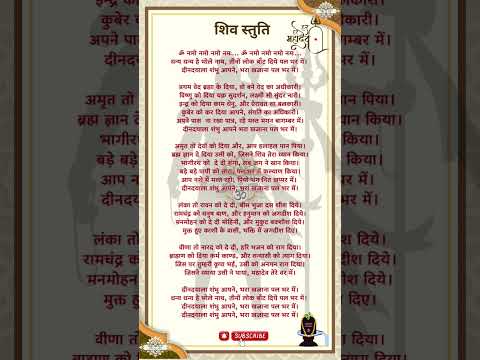 शिव स्तुति
हर हर
महादेव
ॐ नमो नमो नमो नमः... ॐ नमो नमो नमो नमः...
धन्य धन्य है भोले नाथ, तीनों लोक बाँट दिये पल भर में।
दीनदयाला शंभु आपने, भरा खज़ाना पल भर में।
प्रथम वेद ब्रह्मा के दिया, वो बने वेद का अधीकारी।
विष्णु को दिया चक्र सुदर्शन, लक्ष्मी सी सुंदर नारी।
इन्द्र को दिया काम धेनु, और ऐरावत सा बलकारी।
कुबेर को कर दिया आपने, संपति का अधिकारी।
अपने पास ना रखा पात्र, रहे मस्त मगन बाघम्बर में।
दीनदयाला शंभु आपने, भरा खज़ाना पल भर में।
अमृत तो देवों को दिया और, आप हलाहल पान पिया।
ब्रह्म ज्ञान दे दिया उसी को, जिसने शिव तेरा ध्यान किया।
भागीरथ को दे दी गंगा, सब जग ने स्नान किया।
बड़े बड़े पापी को तारा, पल भर में कल्याण किया।
आप नशे में मस्त रहो,
दीनदयाला शंभु आपने, भरा खज़ाना पल भर में।
लंका तो रावन को दे दी, बीस भुजा दस शीश दिये।
रामचंद्र को धनुष बाण, और हनुमान को जगदीश दिये।
मनमोहन को दे दी मोहिनी, और मुकुट बक्शीश दिये।
मुक्त हुए काशी के वासी, भक्ति में जगदीश दिए।
वीणा तो नारद को दे दी, हरि भजन को राग दिया।
ब्राह्मण को दिया कर्म काण्ड, और सन्यासी को त्याग दिया।
जिस पर तुम्हरी कृपा भई, उसी को अनगन राग दिया।
जिसने ध्याया उसी ने पाया, महादेव तेरे वर में।
दीनदयाला शंभु आपने, भरा खज़ाना पल भर में।
धन्य धन्य है भोले नाथ, तीनों लोक बाँट दिये पल भर में।
दीनदयाला शंभु आपने, भरा खज़ाना पल भर में।
दीनदयाला शंभु आपने, भरा खज़ाना पल भर में।
SUBSCRIBE